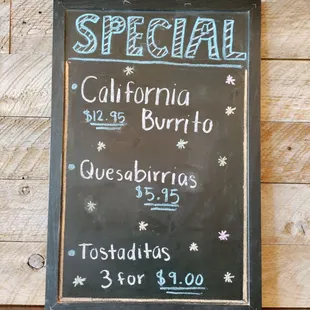 SPECIAL
California
$12.95 Burrito
Quesabirrias
$5.95
Tostaditas
3 for $9.00